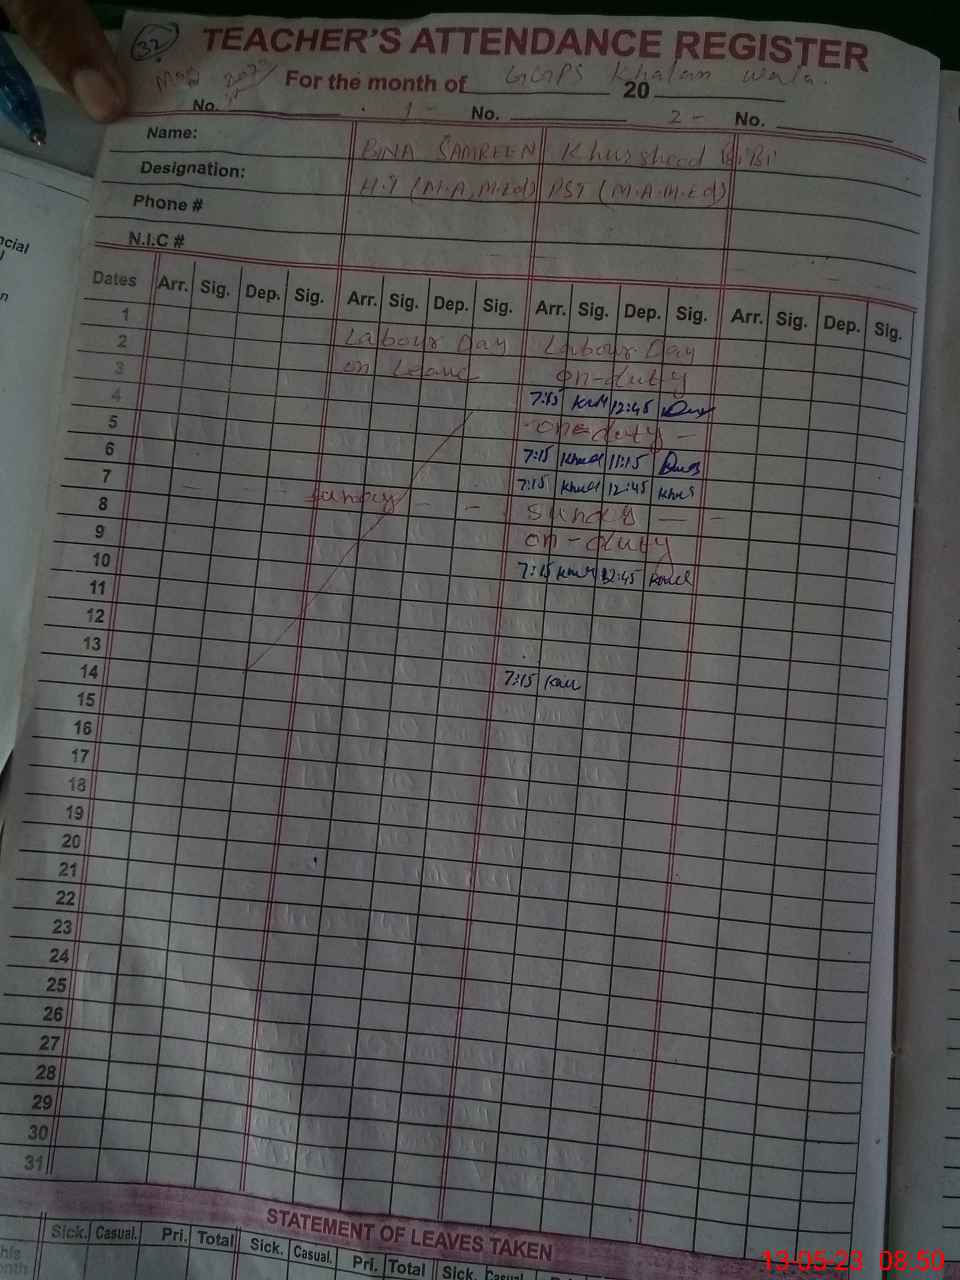 32
TEACHER'S ATTENDANCE REGISTER
May 2023 For the month of GGPS Khalan wala. 20
No. 1 - No. 2 - No.
Name: BINA SAMREEN Khursheed BiBi
Designation: H.T (M.A, M.Ed) PST (M.A.M.Ed)
Phone #
N.I.C #
Dates Arr. Sig. Dep. Sig. Arr. Sig. Dep. Sig. Arr. Sig. Dep. Sig. Arr. Sig. Dep. Sig.
1 Labour Day Labour Day
2 on Leave on-duty
3 7:15 12:45
4 on-duty -
5 7:15 11:15
6 7:15 12:45
7 Sunday - - Sunday - -
8 on-duty
9 7:15 12:45
10
11
12
13 7:15
14
15
16
17
18
19
20
21
22
23
24
25
26
27
28
29
30
31
STATEMENT OF LEAVES TAKEN
Sick. Casual. Pri. Total Sick. Casual. Pri. Total Sick. Casual.
13-05-23 08.50